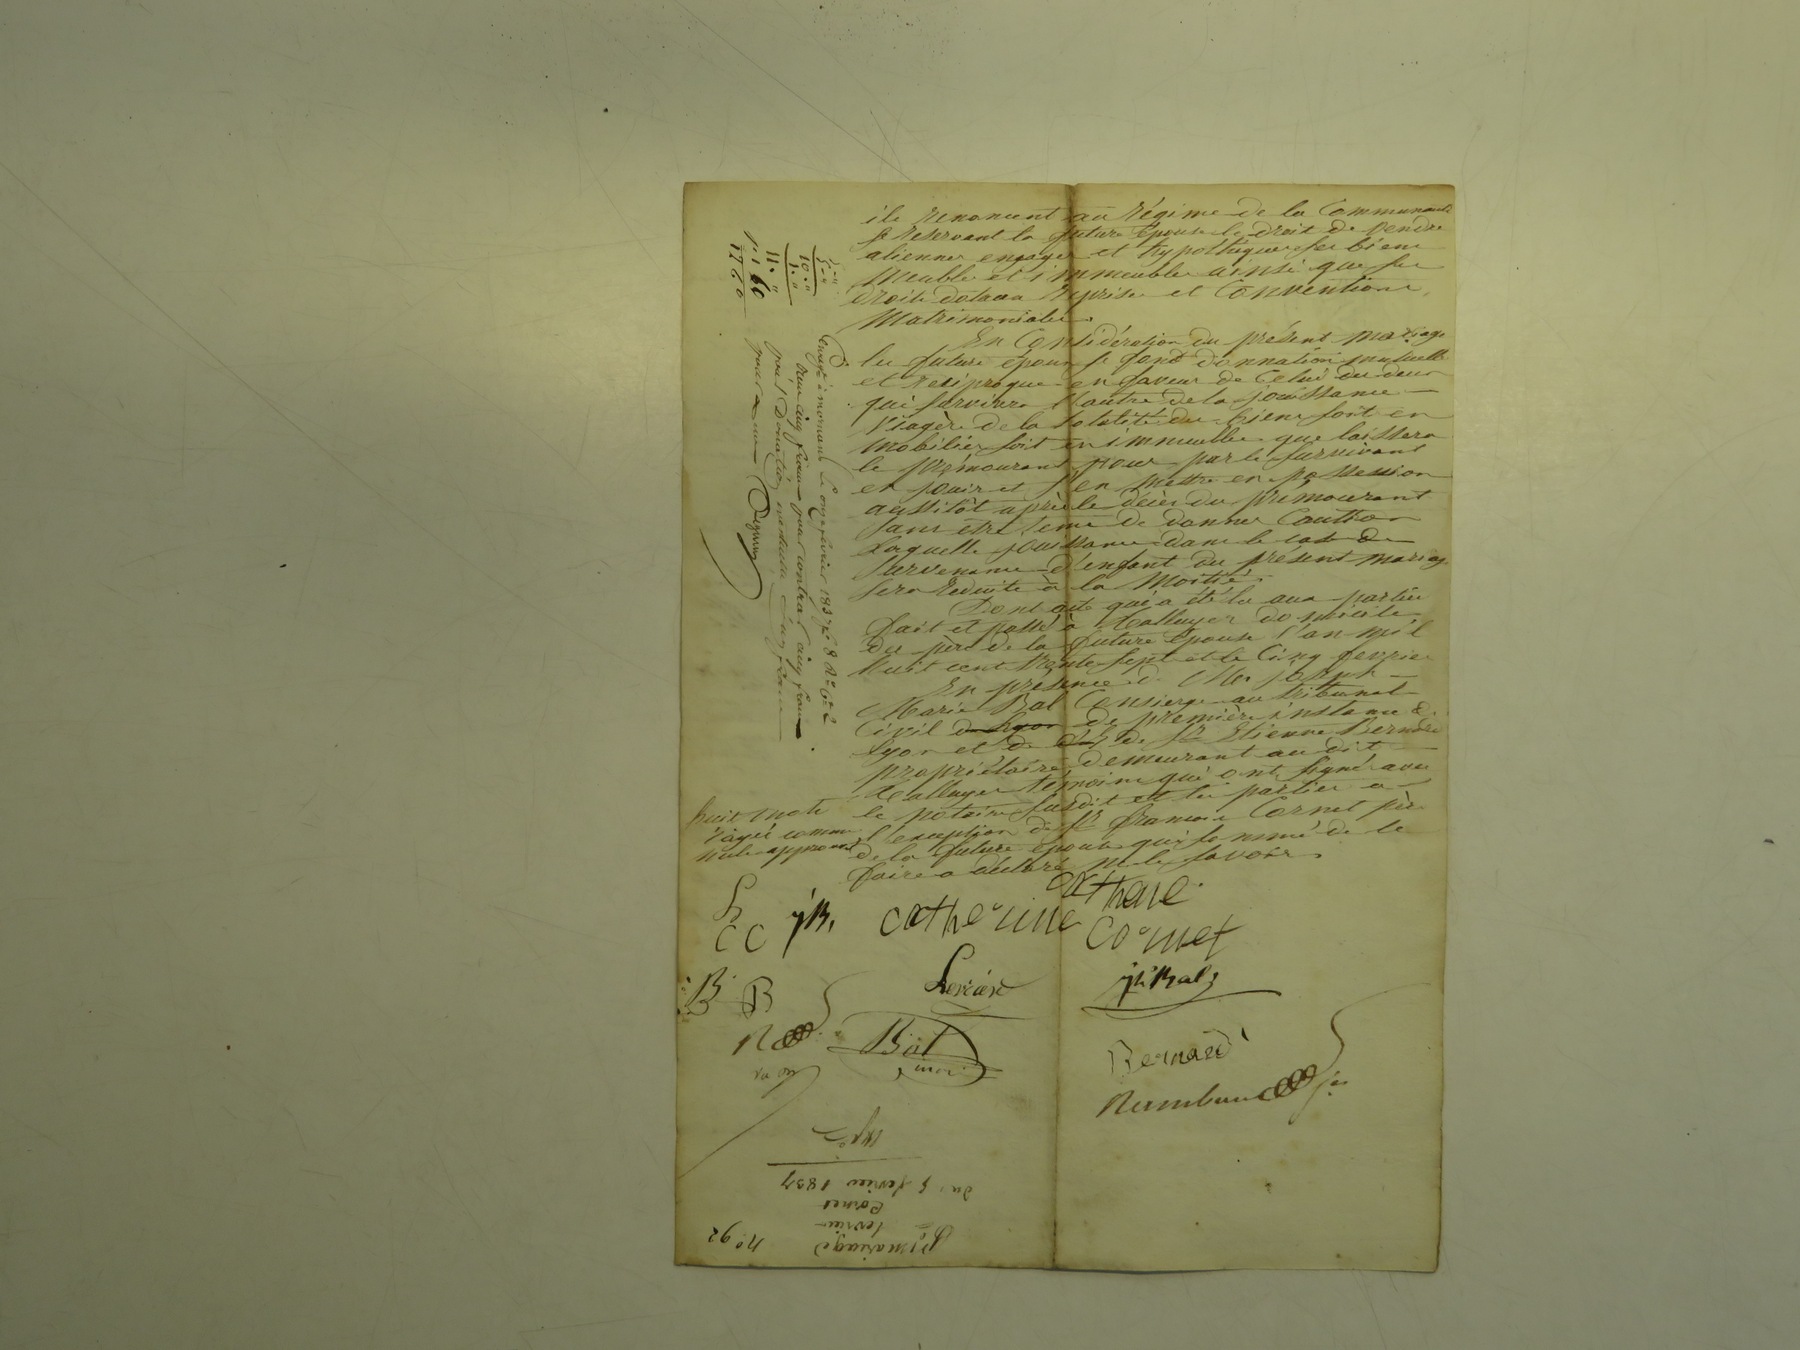 ils renoncent au régime de la Communauté
se reservant la future épouse le droit de vendre
aliener engager et hypothéquer ses biens
meubles et immeubles ainsi que ses
droits dotaux reprises et Conventions
Matrimoniales.
En Considération du présent mariage
les futurs époux se font donnation mutuelle
et reciproque en faveur de Celui des deux
qui survivra l'autre de la jouissance
viagère de la totalité des biens soit en
mobilier soit en immeubles que laissera
le prémourant pour par le survivant
en jouir et s'en mettre en possession
aussitôt après le décès du prémourant
sans être tenu de donner Caution
Laquelle jouissance dans le cas de
survenance d'enfant du présent mariage
sera reduite à la moitié.
Dont acte qui a été lu aux parties
fait et passé à Taluyer domicile
du père de la future épouse l'an mil
huit cent trente sept et le Cinq fevrier
En présence de Joseph
Marie Bal Concierge au tribunal
Civil de Lyon de première instance de
Lyon et de de Sr Etienne Bernard
propriétaire demeurant au dit
Taluyer témoins qui ont signé avec
le notaire susdit et les parties à
l'exception de Sr françois Cornet père
de la future épouse qui sommé de le
faire a déclaré ne le savoir.
huit mots
rayés comme
nuls approuvés
Catherine
Cornet
C C
J B.
Bal
B
B
Bernard
Enregé à mornant le onze fevrier 1837 fo 8
Reçu cinq francs pour contrat cinq francs
pour Donation mutuelle cinq francs
10
11
1 60
no 92
mariage
Cornet
du 5 fevrier 1837